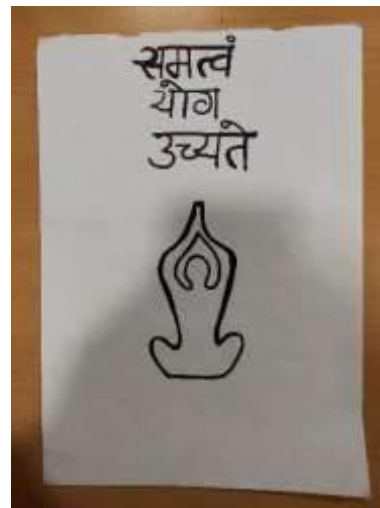 समत्वं
योग
उच्यते